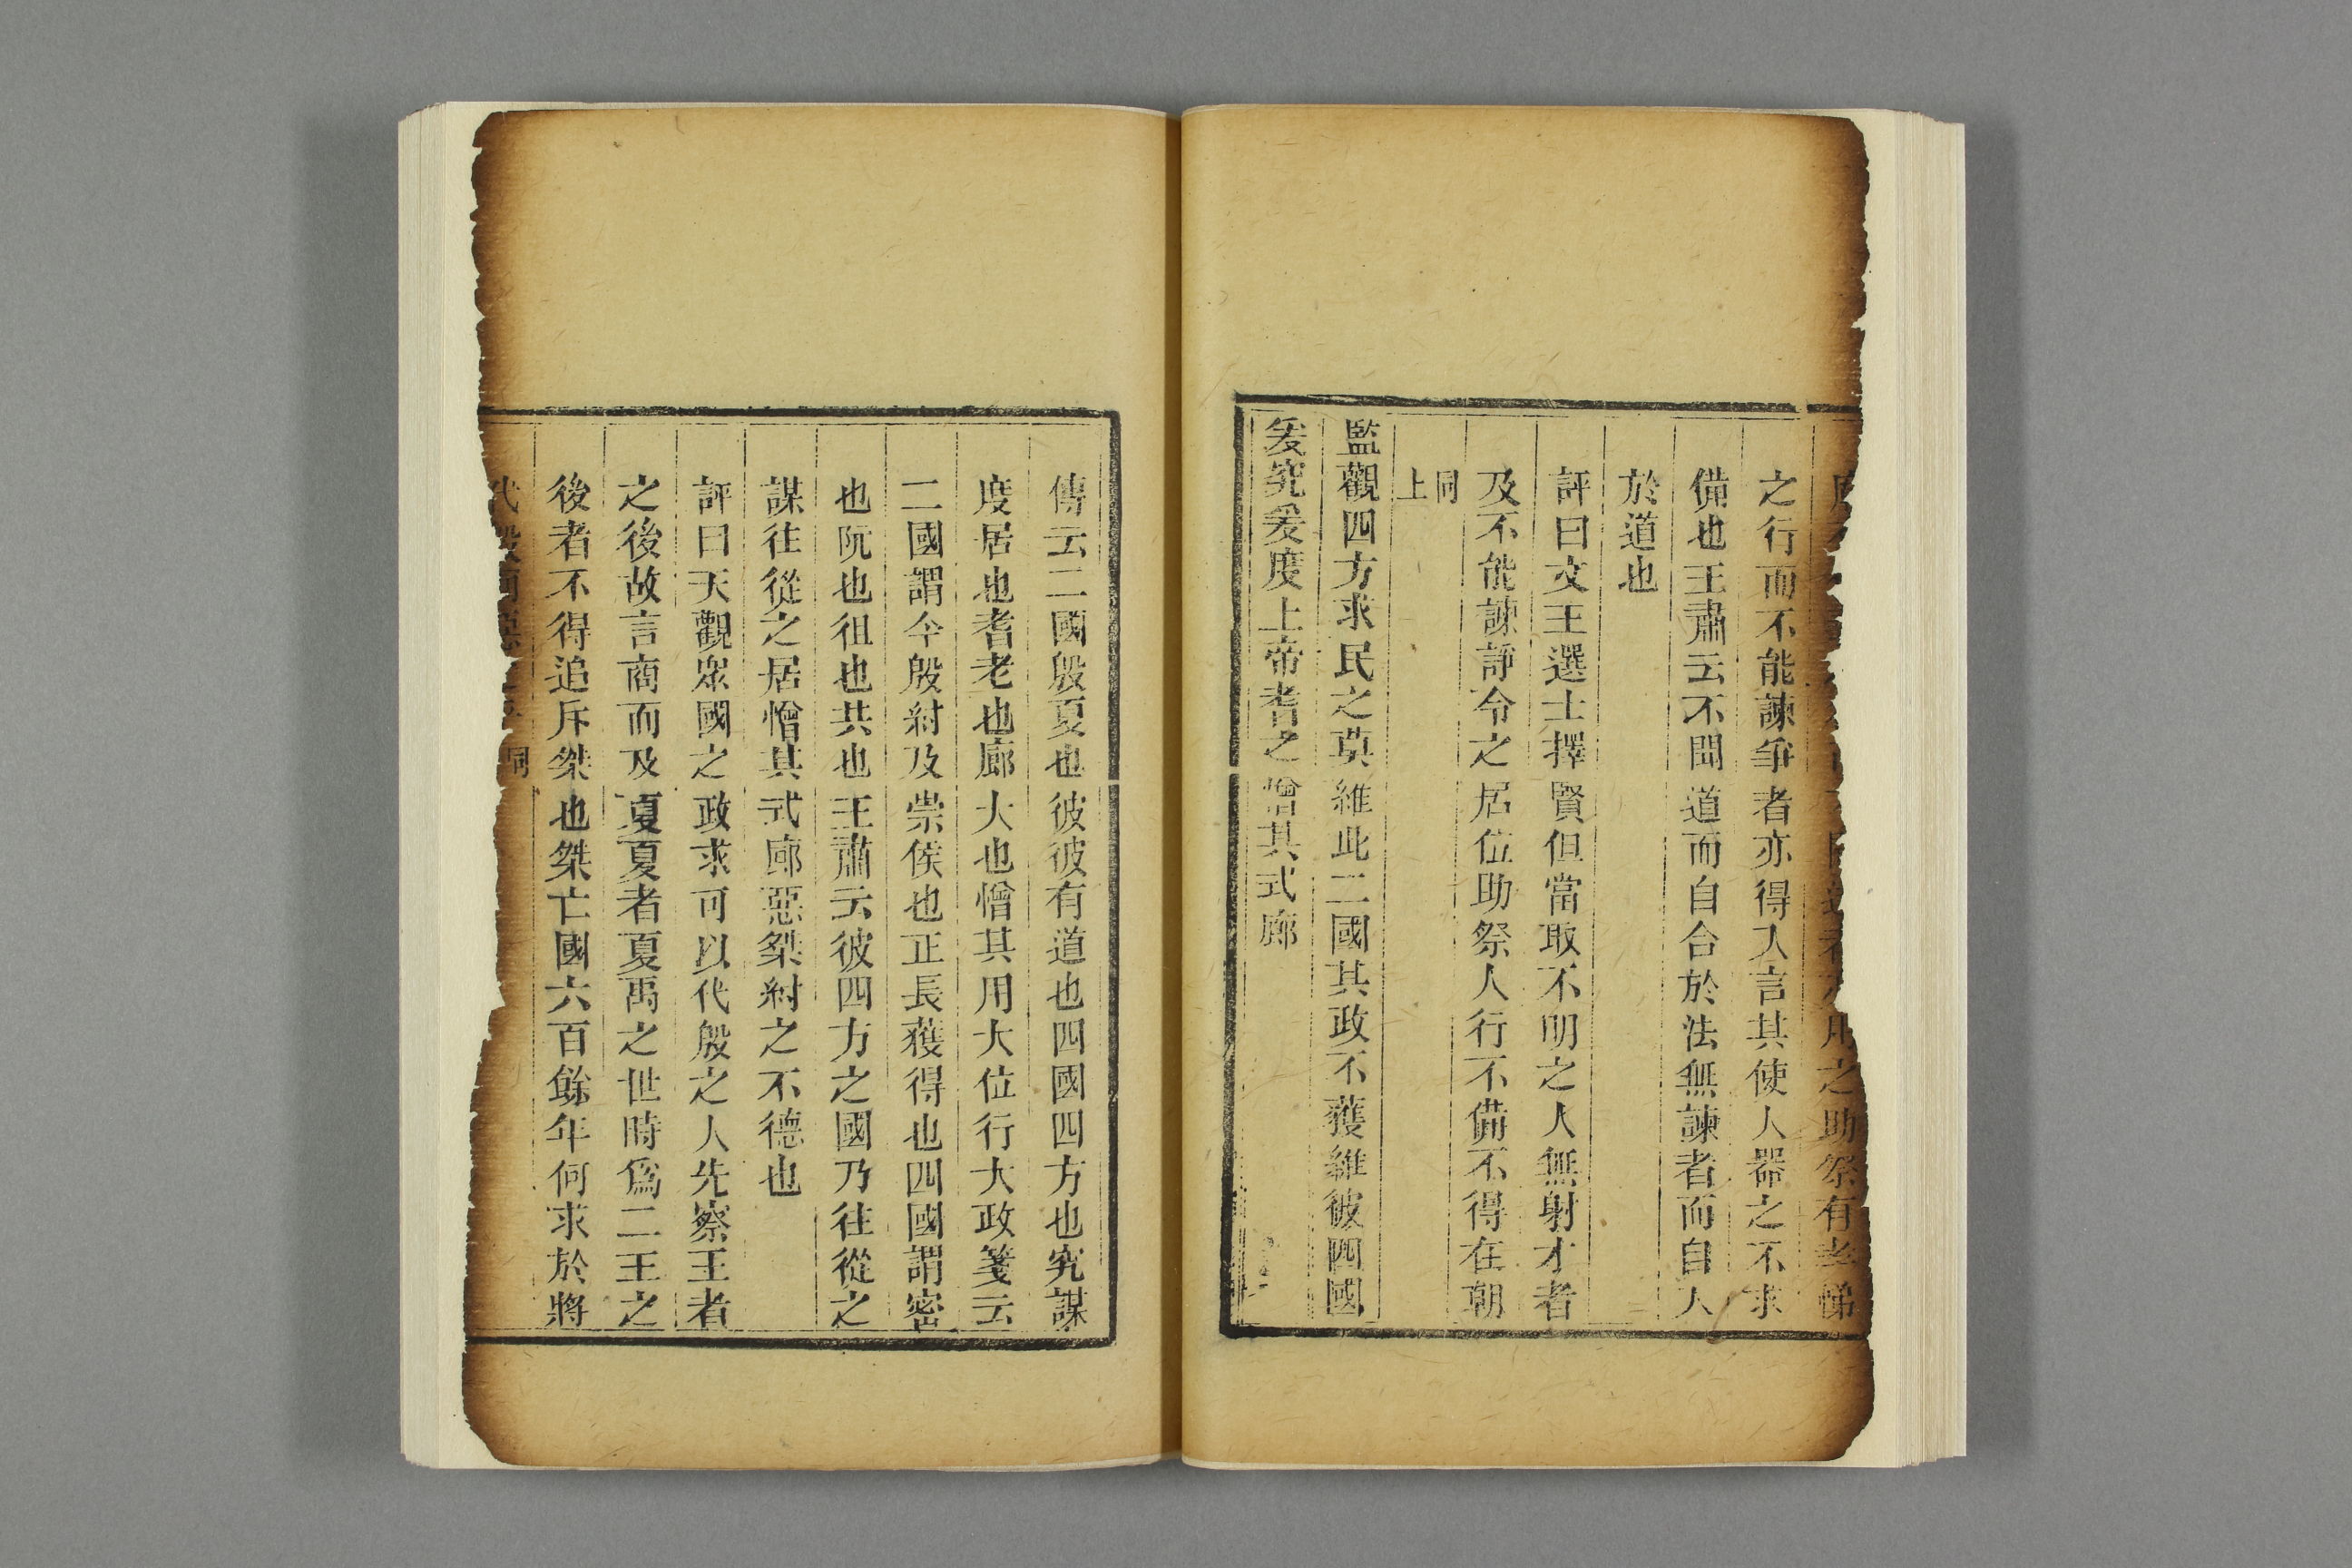 之助祭有孝悌
之行而不能諫爭者亦得入言其使人器之不求
備也王肅云不聞道而自合於法無諫者而自入
於道也
評曰文王選士擇賢但當取不明之人無射才者
及不能諫諍令之居位助祭人行不備不得在朝
同上
監觀四方求民之莫維此二國其政不獲維彼四國
爰究爰度上帝耆之憎其式廓
傳云二國殷夏也彼彼有道也四國四方也究謀
度居也耆老也廓大也憎其用大位行大政箋云
二國謂今殷紂及崇侯也正長獲得也四國謂密
也阮也徂也共也王肅云彼四方之國乃往從之
謀往從之居憎其式廓惡桀紂之不德也
評曰天觀眾國之政求可以代殷之人先察王者
之後故言商而及夏夏者夏禹之世時爲二王之
後者不得追斥桀也桀亡國六百餘年何求於將
代殷 同